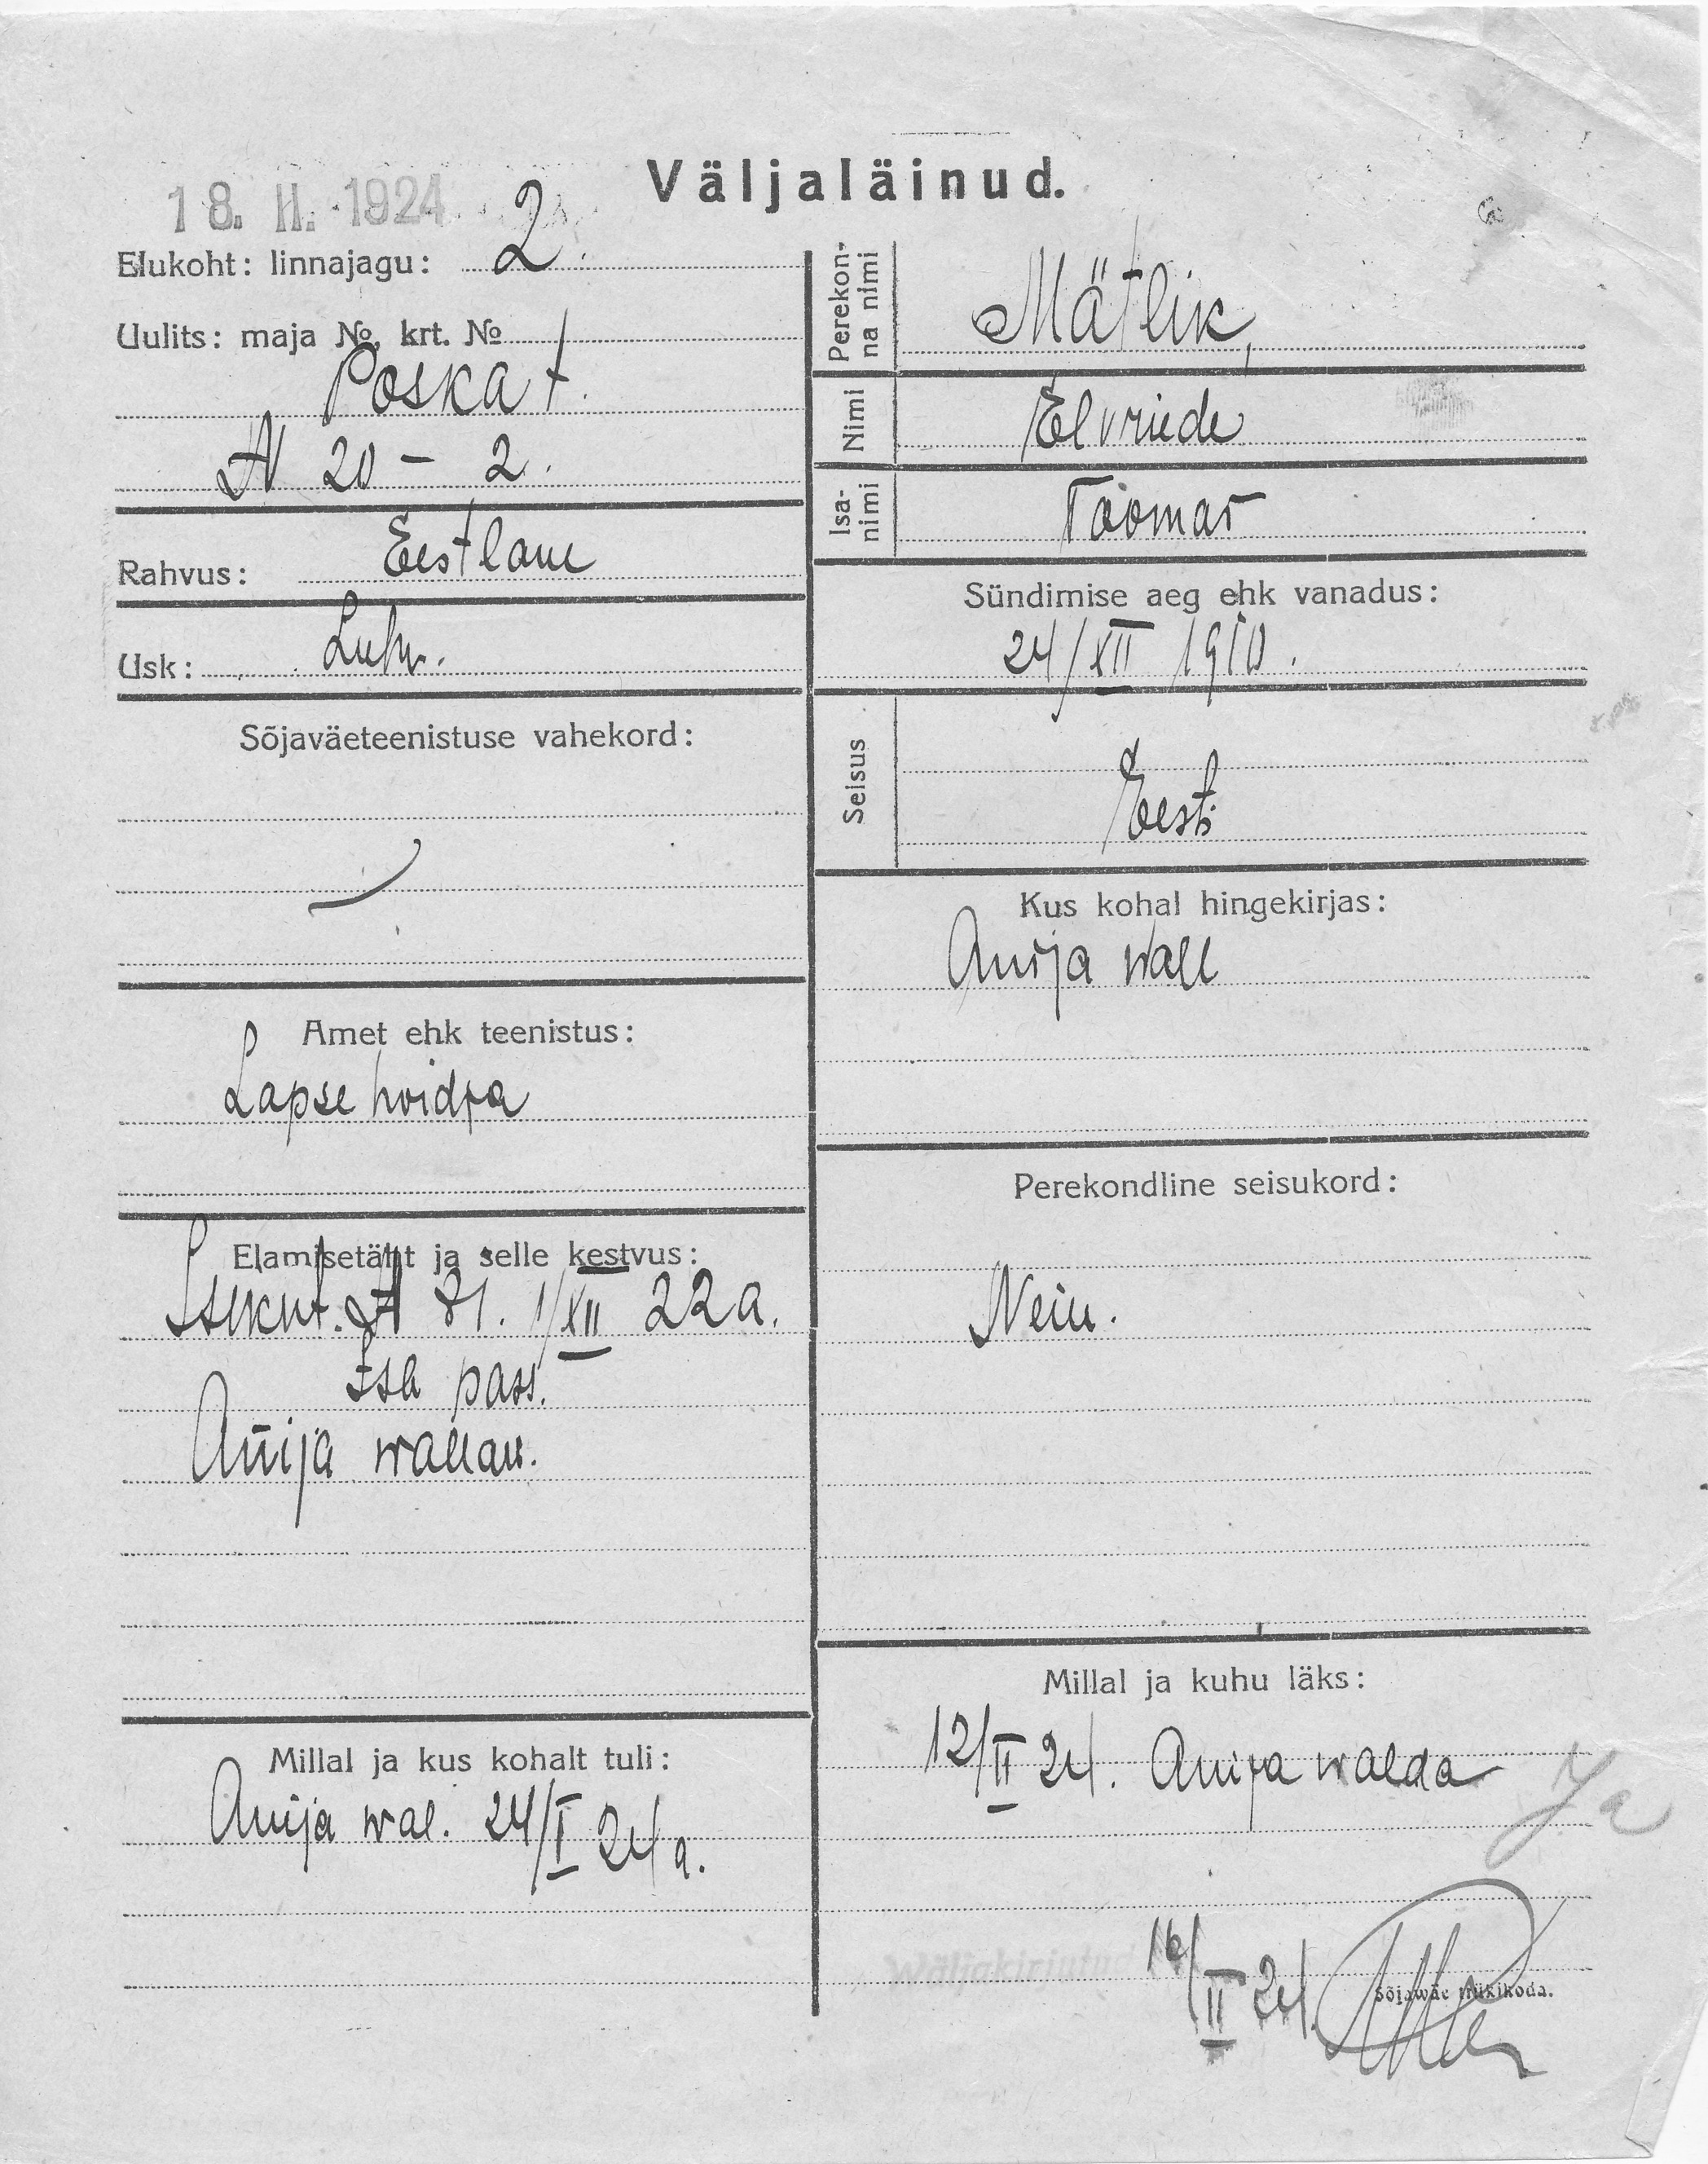 Väljaläinud.
18. II. 1924
Elukoht: linnajagu: 2.
Uulits: maja №, krt. №
Poska t.
№ 20 – 2.
Rahvus: Eestlane
Usk: Luth.
Sõjaväeteenistuse vahekord:
Amet ehk teenistus:
Lapse hoidja
Elamisetäht ja selle kestvus:
Isikut. № 81. 1/XII 22 a.
Isa pass.
Anija wallaw.
Millal ja kus kohalt tuli:
Anija wal. 24/I 24 a.
Perekonna nimi
Mätlik,
Nimi
Elvriede
Isanimi
Toomas
Sündimise aeg ehk vanadus:
24/XII 1910.
Seisus
Eesti
Kus kohal hingekirjas:
Anija wall
Perekondline seisukord:
Neiu.
Millal ja kuhu läks:
12/II 24. Anija walda
Ja
Wäljakirjutud
16/II 24
Sõjawäe trükikoda.